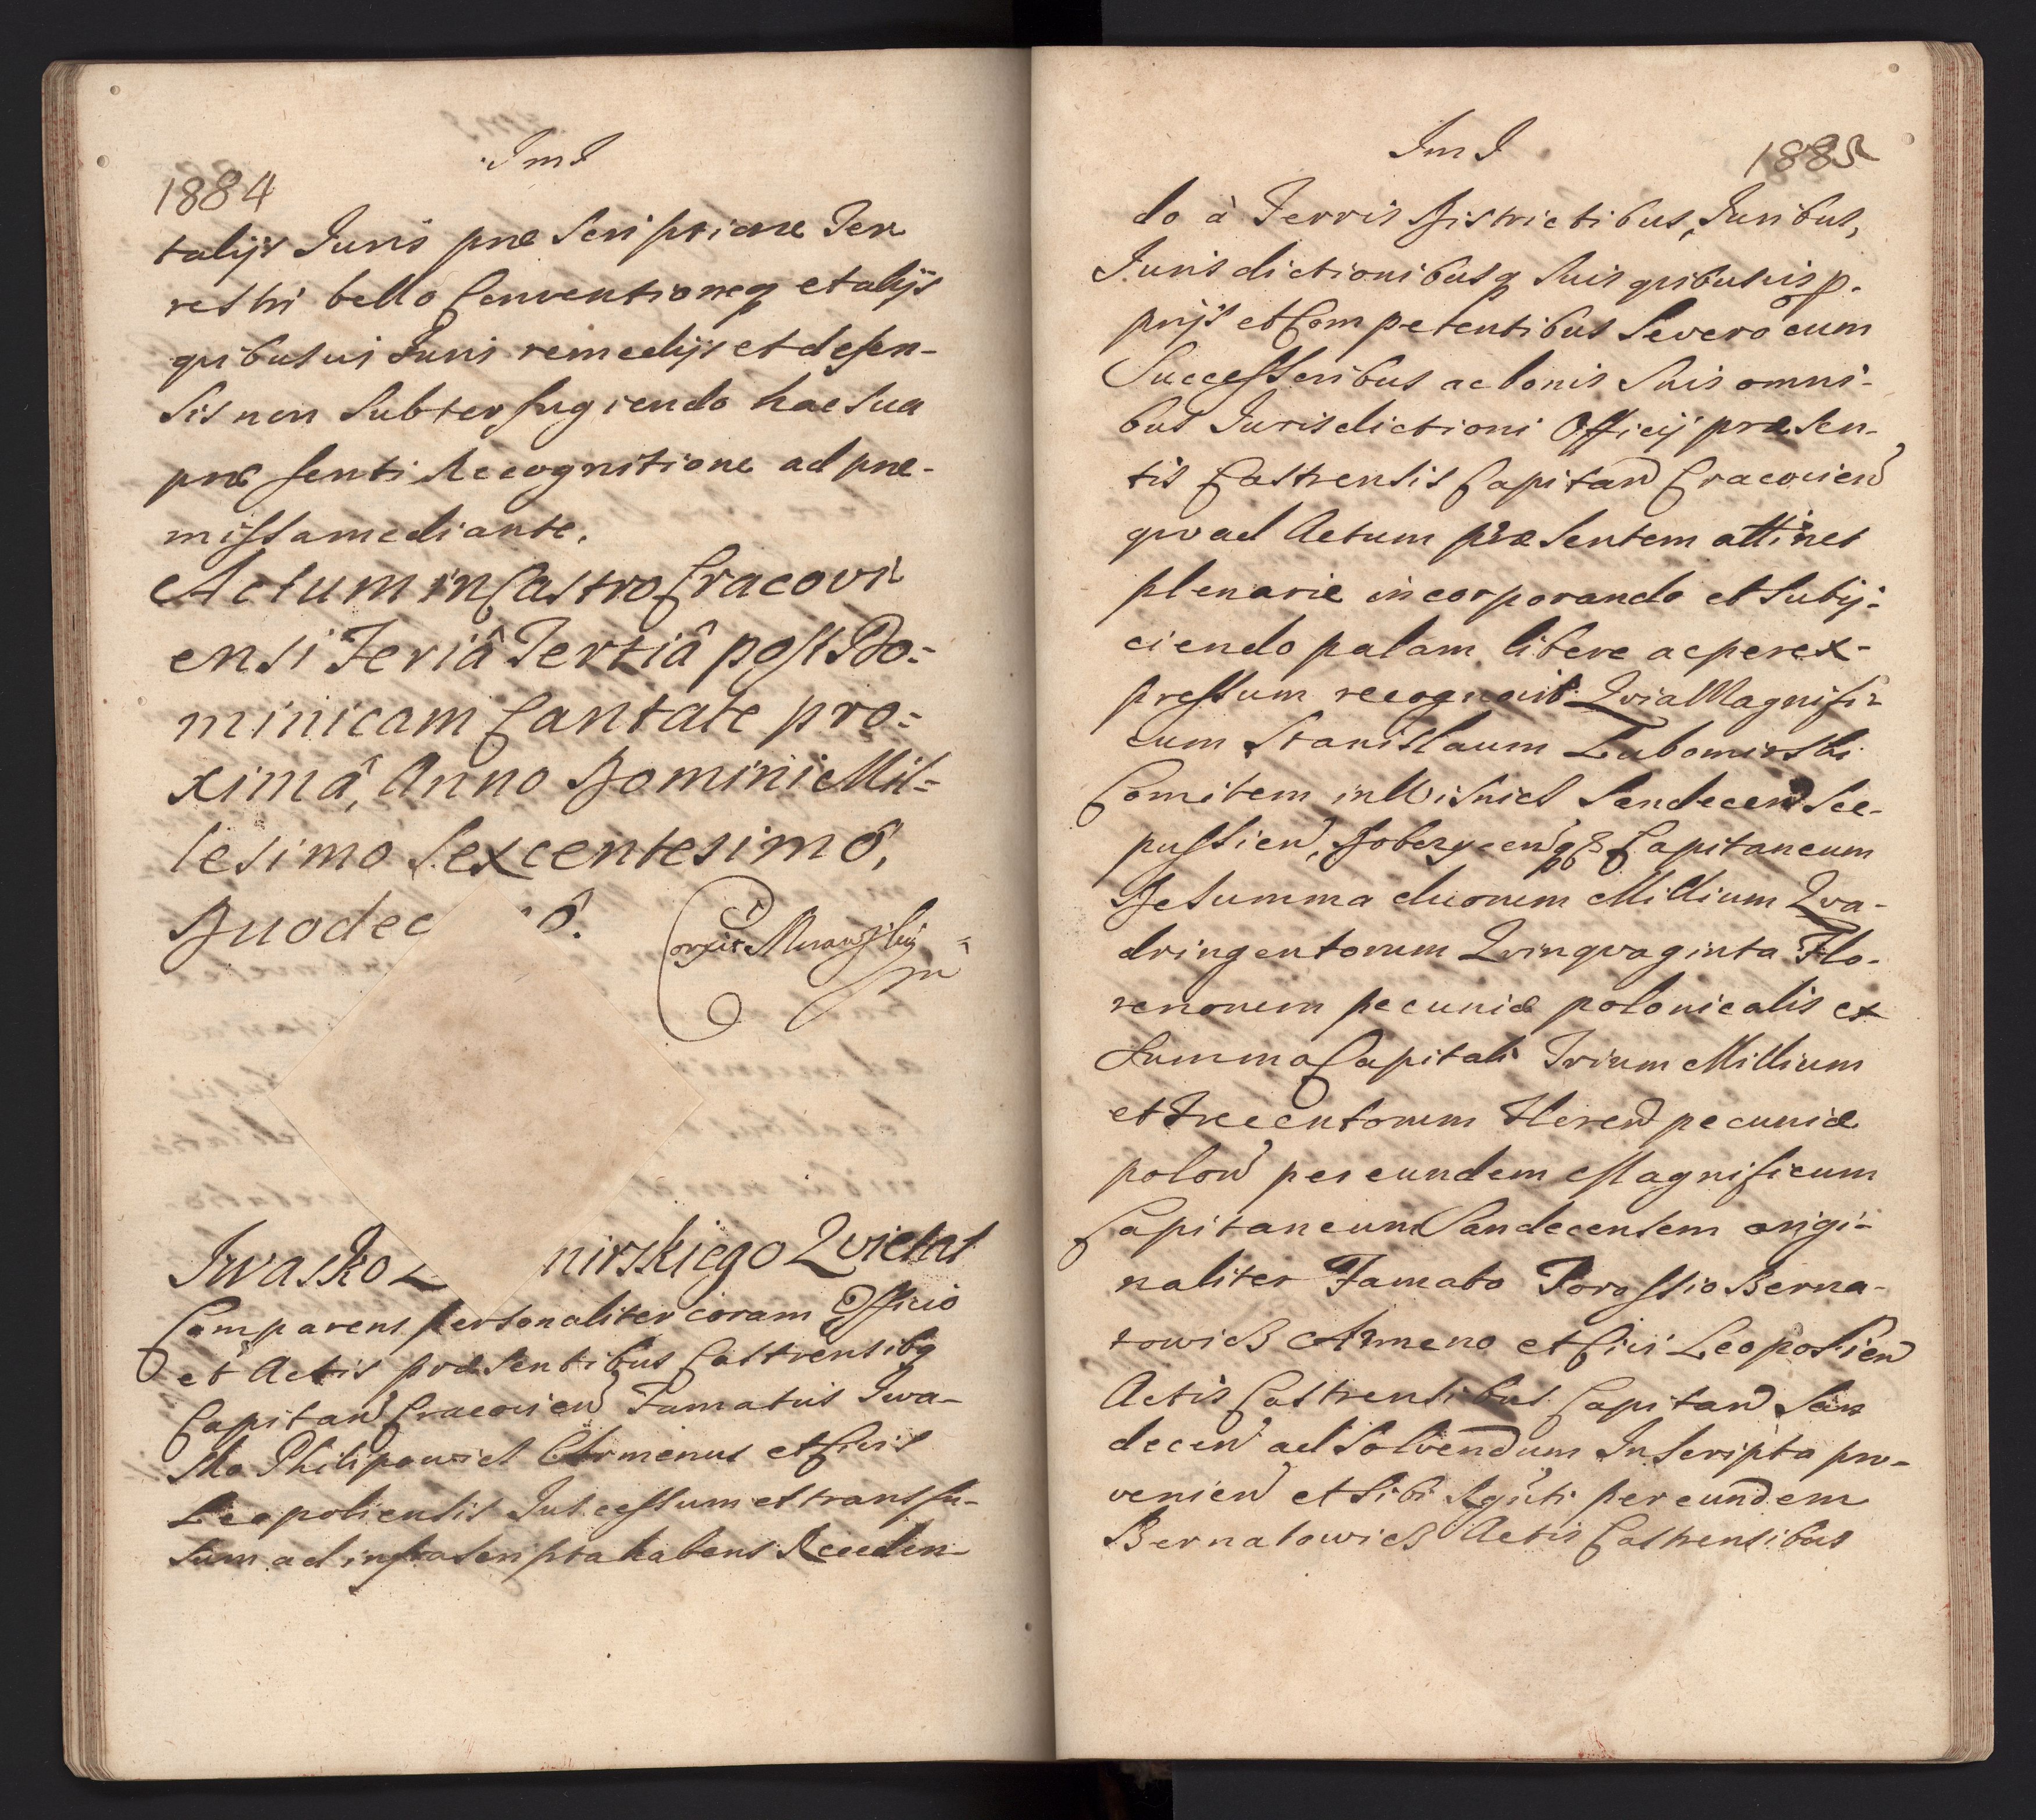 JmJ
1884
talijs Juris præscriptione Ter
restri bello Conventioneq et alijs
quibusvis Juris remedijs et defen-
sis non subterfugiendo hac sua
præsenti Recognitione ad præ-
missa mediante.
Actum in Castro Cracovi
ensi Feriâ Tertiâ post Do=
minicam Cantate pro=
ximâ, Anno Domini Mil=
lesimo Sexcentesimô,
Duodec ô.
Corrxit
Iwasko L nirskiego Qvietat
Comparens personaliter coram Officio
et Actis præsentibus Castrensibq
Capitan Cracovien Famatus Iwa-
sko Philipowicz Armenus et Civis
Leopoliensis Jus cessum et transfu-
sum ad infrascripta habens Receden-
JmJ
1885
do à Terris Districtibus, Juribus,
Jurisdictionibusq suis quibusvis p.
prijs et Competentibus Se vero cum
Successoribus ac bonis suis omni-
bus Jurisdictioni Officij præsen-
tis Castrensis Capitan Cracovien
quoad Actum præsentem attinet
plenarie incorporando et subij-
ciendo palam libere ac per ex-
pressum recognovit Qvia Magnifi-
cum Stanislaum Lubomirski
Comitem in Wisnicz Sandecen Sce-
pussien, Dobczycenq & Capitaneum
De summa duorum Millium Qva-
dringentorum Qvinqvaginta Flo-
renorum pecuniæ polonicalis ex
Summa Capitali Trium Millium
et Trecentorum Floren pecuniæ
polon per eundem Magnificum
Capitaneum Sandecensem origi-
naliter Famato Torossio Berna-
towicz Armeno et Civi Leopolien
Actis Castrensibus Capitan San
decen ad solvendum Inscripta pro-
venien et sibi Rgnti per eundem
Bernatowicz Actis Castrensibus